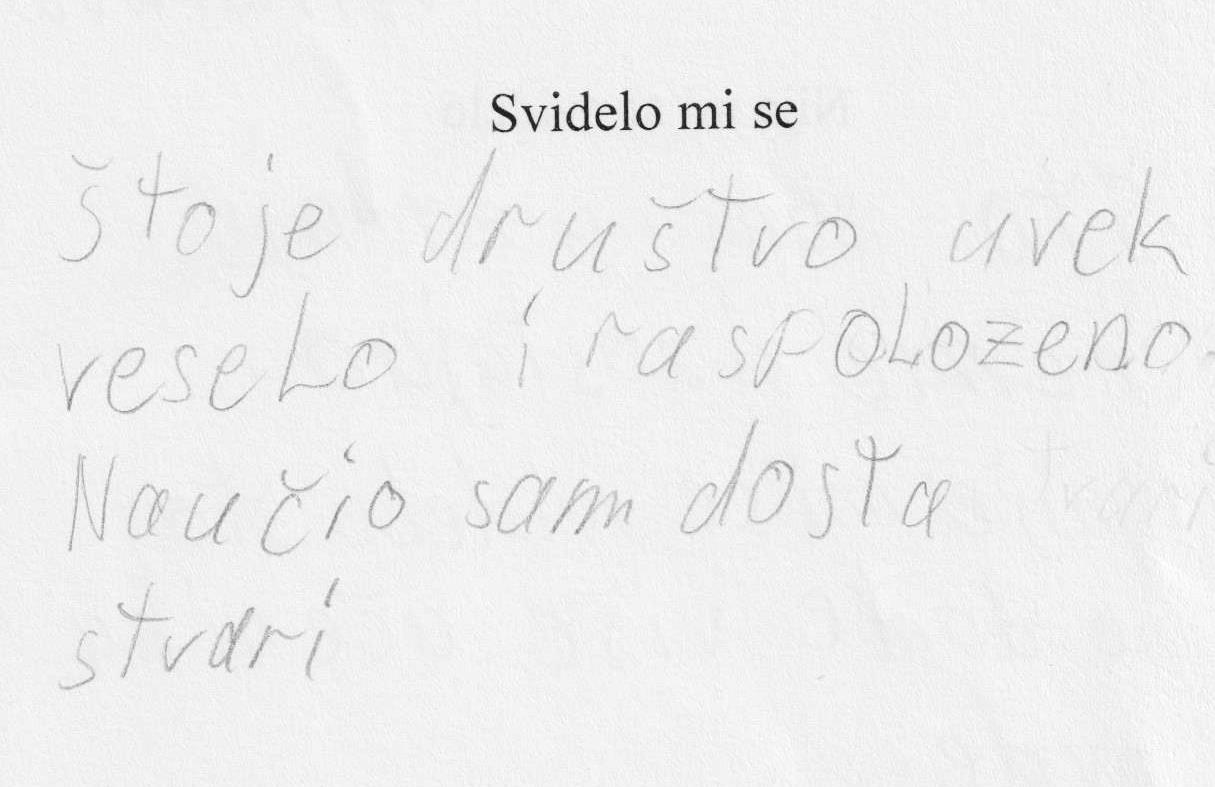 Svidelo mi se
što je društvo uvek
veselo i raspolozeno.
Naučio sam dosta
stvari